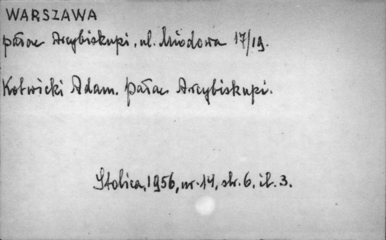 WARSZAWA
pałac Arcybiskupi, ul. Miodowa 17/19.
Kotwicki Adam. pałac Arcybiskupi.
Stolica, 1956, nr. 14, str. 6, il. 3.